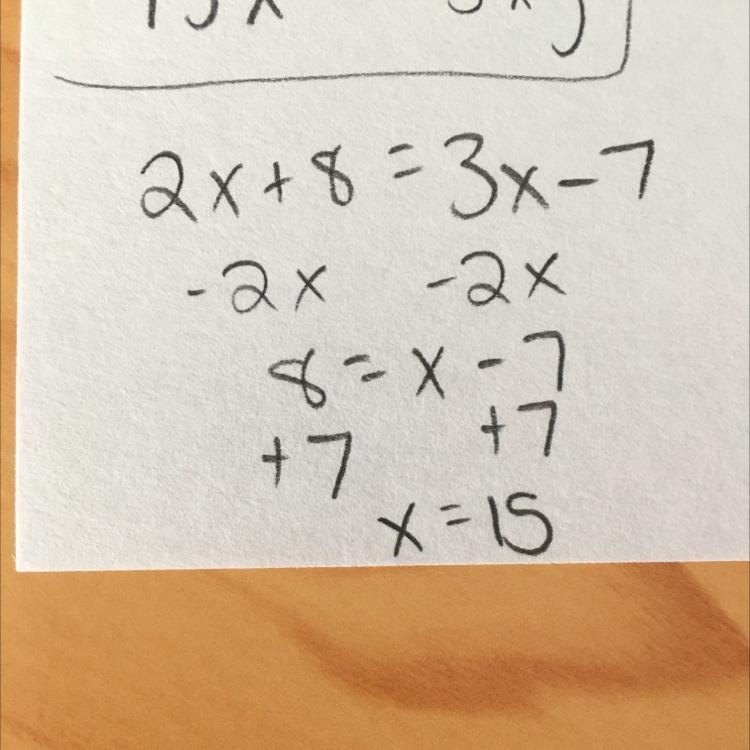 2x+8=3x-7
-2x -2x
8=x-7
+7 +7
x=15